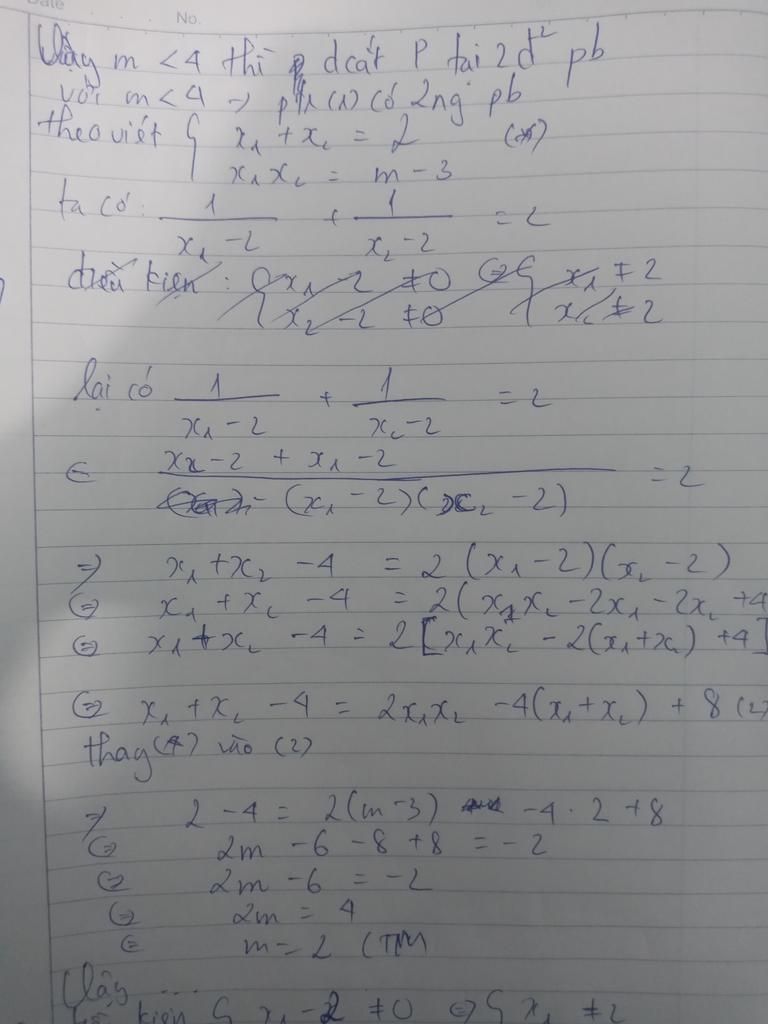 Date
No.
Vậy m < 4 thì d cắt P tại 2 đ² pb
với m < 4 → pt (1) có 2 ng pb
theo viét { x₁ + x₂ = 2 (*)
x₁x₂ = m - 3
ta có: 1/(x₁ - 2) + 1/(x₂ - 2) = 2
điều kiện: { x₁ - 2 ≠ 0 ⇔ { x₁ ≠ 2
x₂ - 2 ≠ 0 x₂ ≠ 2
lại có 1/(x₁ - 2) + 1/(x₂ - 2) = 2
⇔ (x₂ - 2 + x₁ - 2)/((x₁ - 2)(x₂ - 2)) = 2
⇒ x₁ + x₂ - 4 = 2(x₁ - 2)(x₂ - 2)
⇔ x₁ + x₂ - 4 = 2(x₁x₂ - 2x₁ - 2x₂ + 4
⇔ x₁ + x₂ - 4 = 2[x₁x₂ - 2(x₁ + x₂) + 4]
⇔ x₁ + x₂ - 4 = 2x₁x₂ - 4(x₁ + x₂) + 8 (2)
thay (*) vào (2)
⇒ 2 - 4 = 2(m - 3) - 4 · 2 + 8
⇔ 2m - 6 - 8 + 8 = -2
⇔ 2m - 6 = -2
⇔ 2m = 4
⇔ m = 2 (TM)
Vậy ...
kiện { x₁ - 2 ≠ 0 ⇔ { x₁ ≠ 2